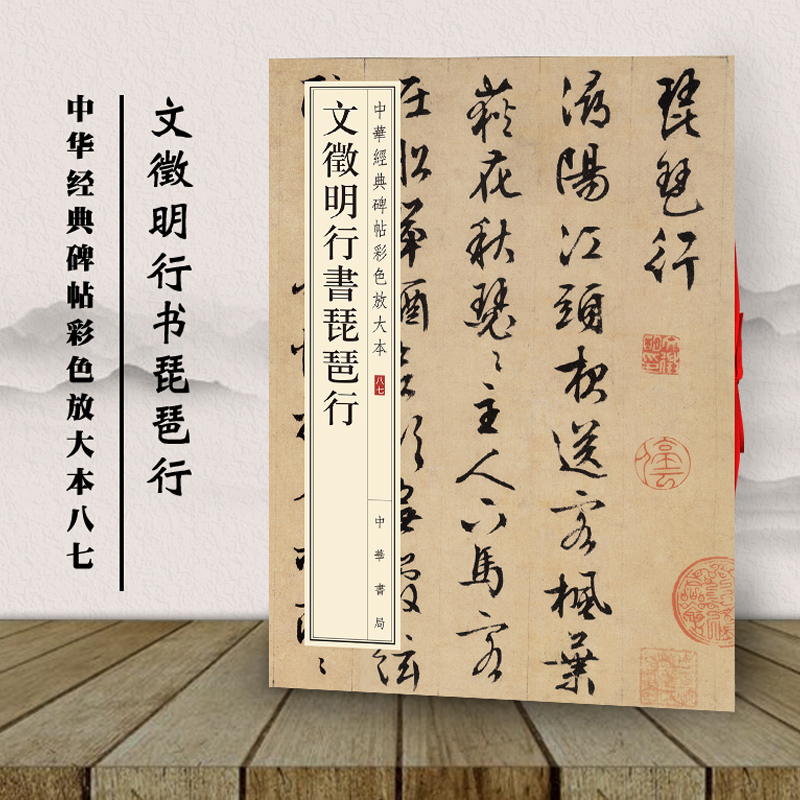 文徵明行书琵琶行
中华经典碑帖彩色放大本八七
琵琶行
潯陽江頭夜送客楓葉
荻花秋瑟〻主人下馬客
中華經典碑帖彩色放大本
八七
中華書局
文徵明行書琵琶行